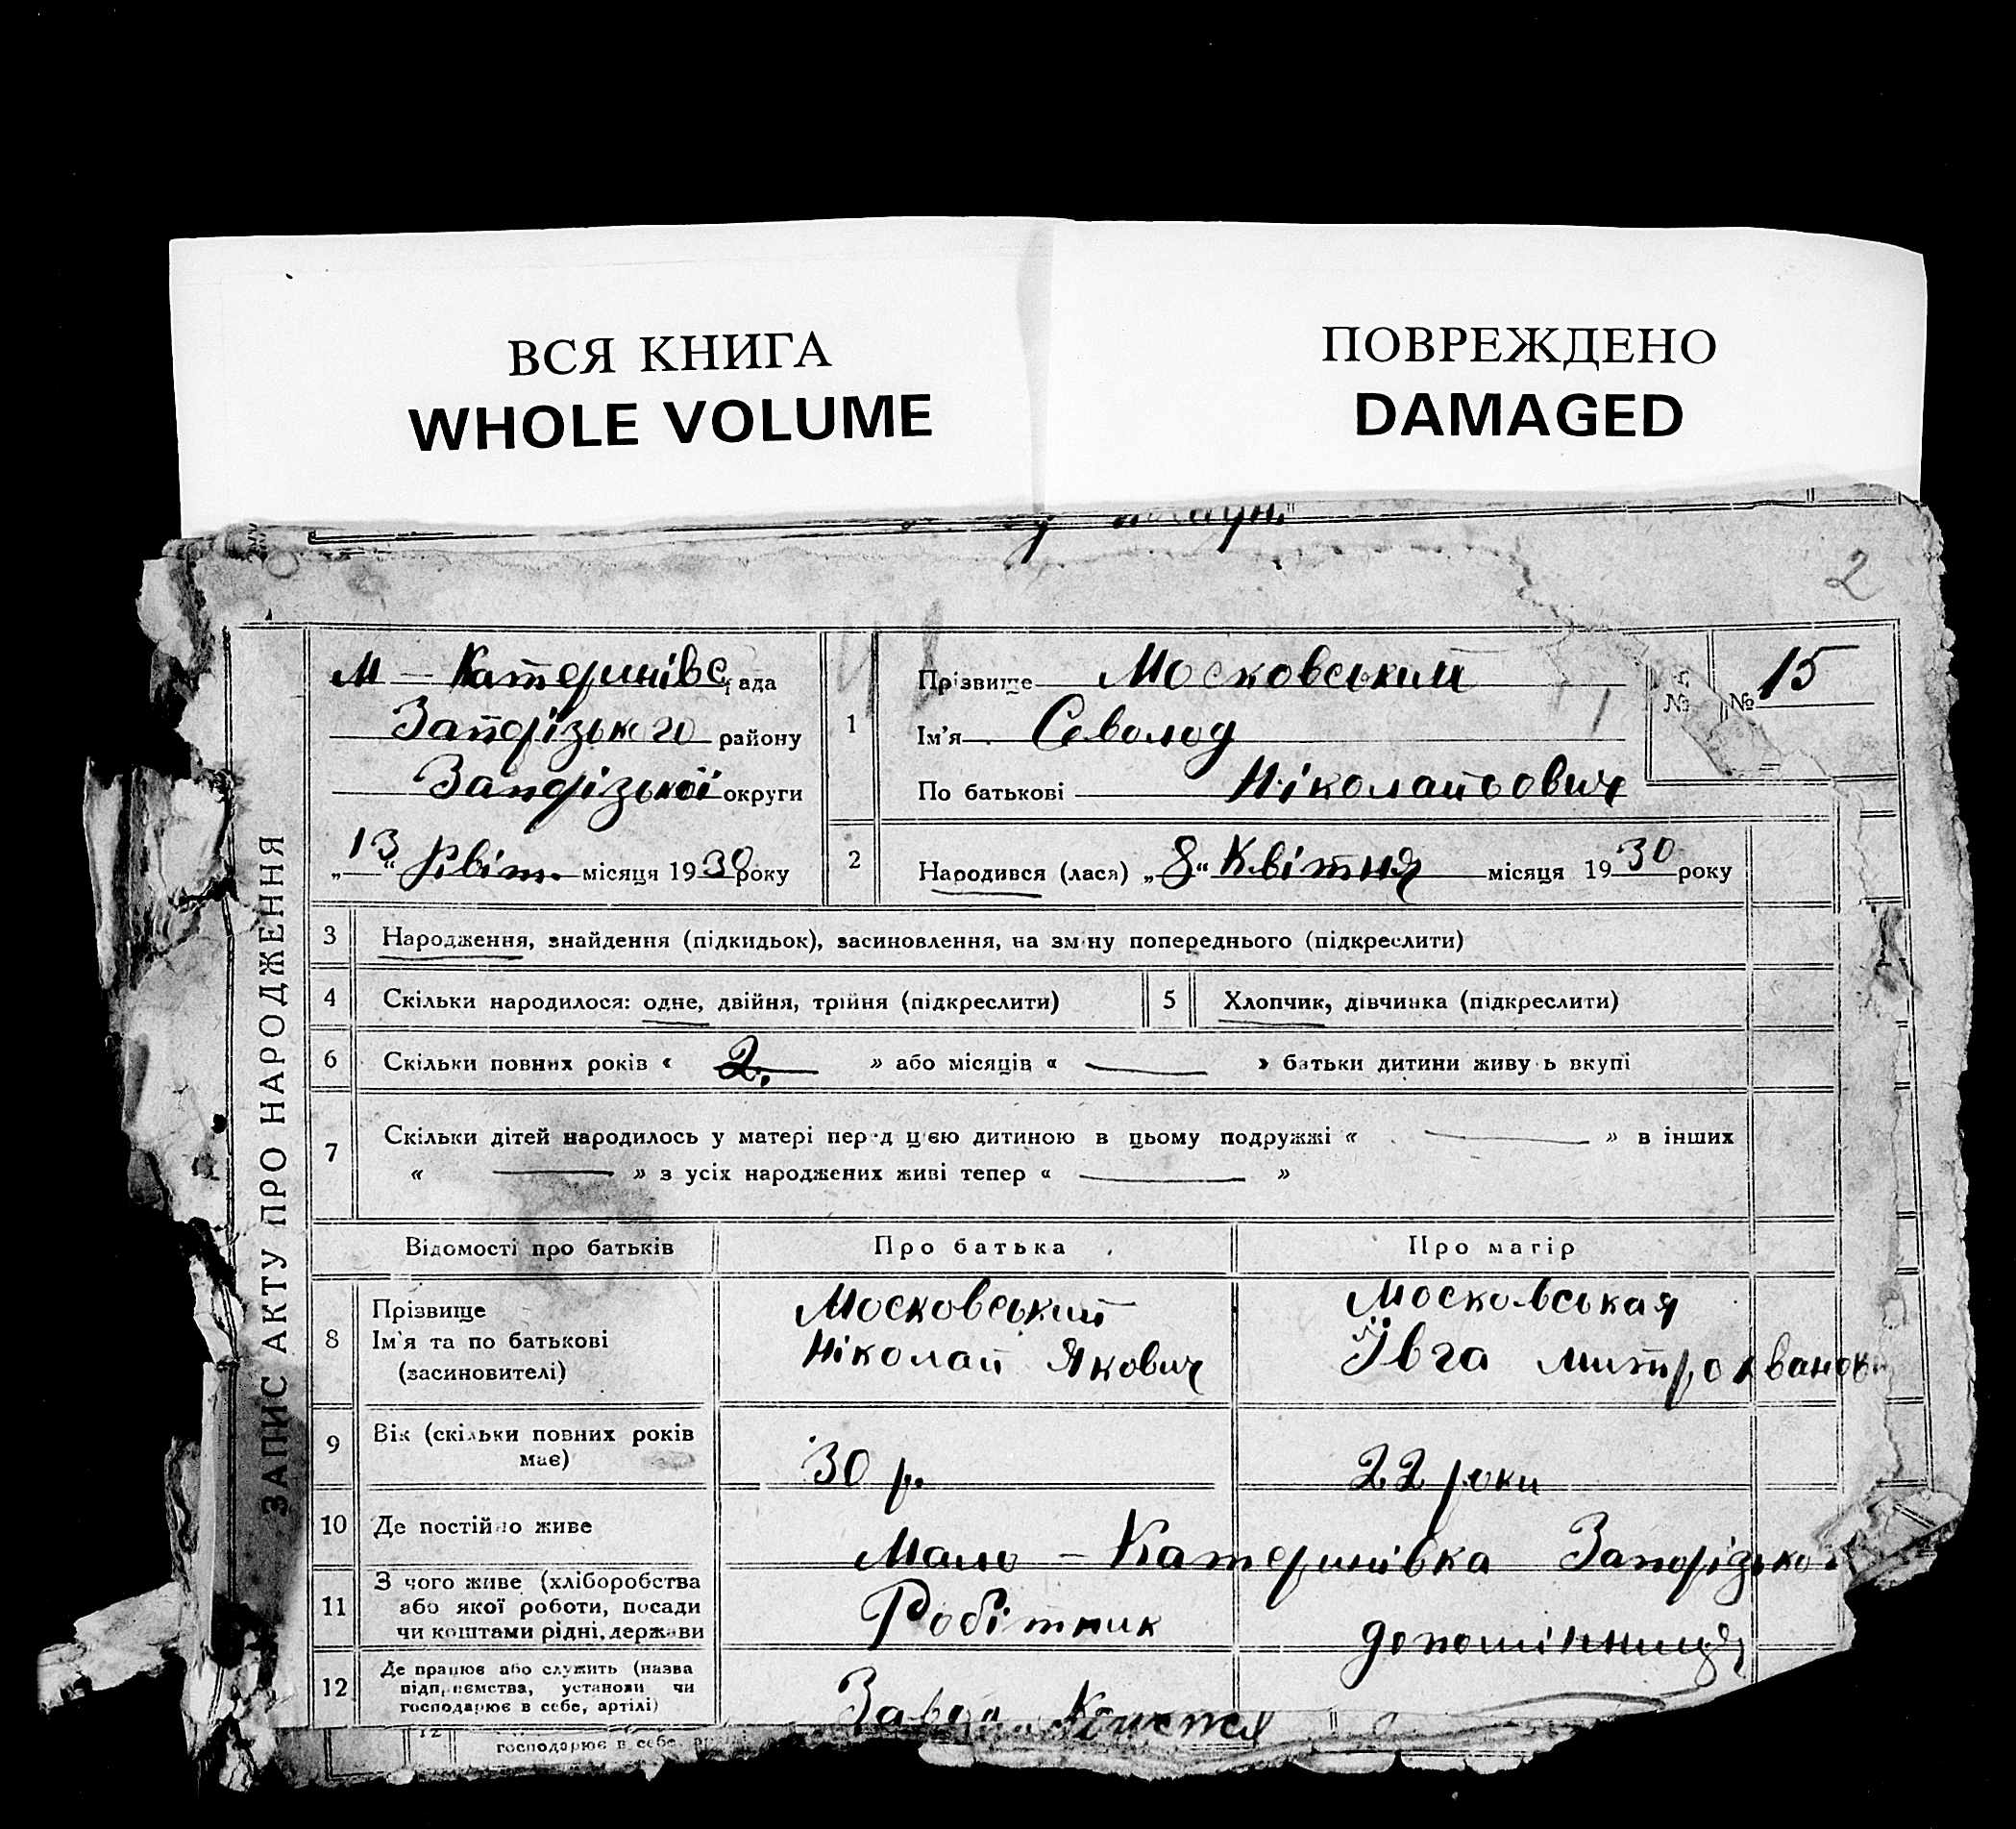 ВСЯ КНИГА
WHOLE VOLUME
ПОВРЕЖДЕНО
DAMAGED
2
ЗАПИС АКТУ ПРО НАРОДЖЕННЯ
М - Катеринівс рада
Запорізького району
Запорізької округи
„13“ Квітн. місяця 1930 року
1
Прізвище Московський
Ім'я Севолод
По батькові Ніколайович
№
№ 15
2 Народився (лася) „8“ Квітня місяця 1930 року
3 Народження, знайдення (підкидьок), засиновлення, на зміну попереднього (підкреслити)
4 Скільки народилося: одне, двійня, трійня (підкреслити)
5 Хлопчик, дівчинка (підкреслити)
6 Скільки повних років « 2. » або місяців « — » батьки дитини живуть вкупі
7 Скільки дітей народилось у матері перед цією дитиною в цьому подружжі « — » в інших
« — » з усіх народжених живі тепер « — »
Відомості про батьків Про батька Про матір
8 Прізвище
Ім'я та по батькові
(засиновителі)
Московський
Ніколай Якович
Московськая
Ївга
9 Вік (скільки повних років
має)
30 р.
22 роки
10 Де постійно живе
Мало - Катеринівка Запорізько
11 З чого живе (хліборобства
або якої роботи, посади
чи коштами рідні, держави
Робітник
12 Де працює або служить (назва
підприємства, установи чи
господарює в себе, артілі)
Завод
12
господарює в себе